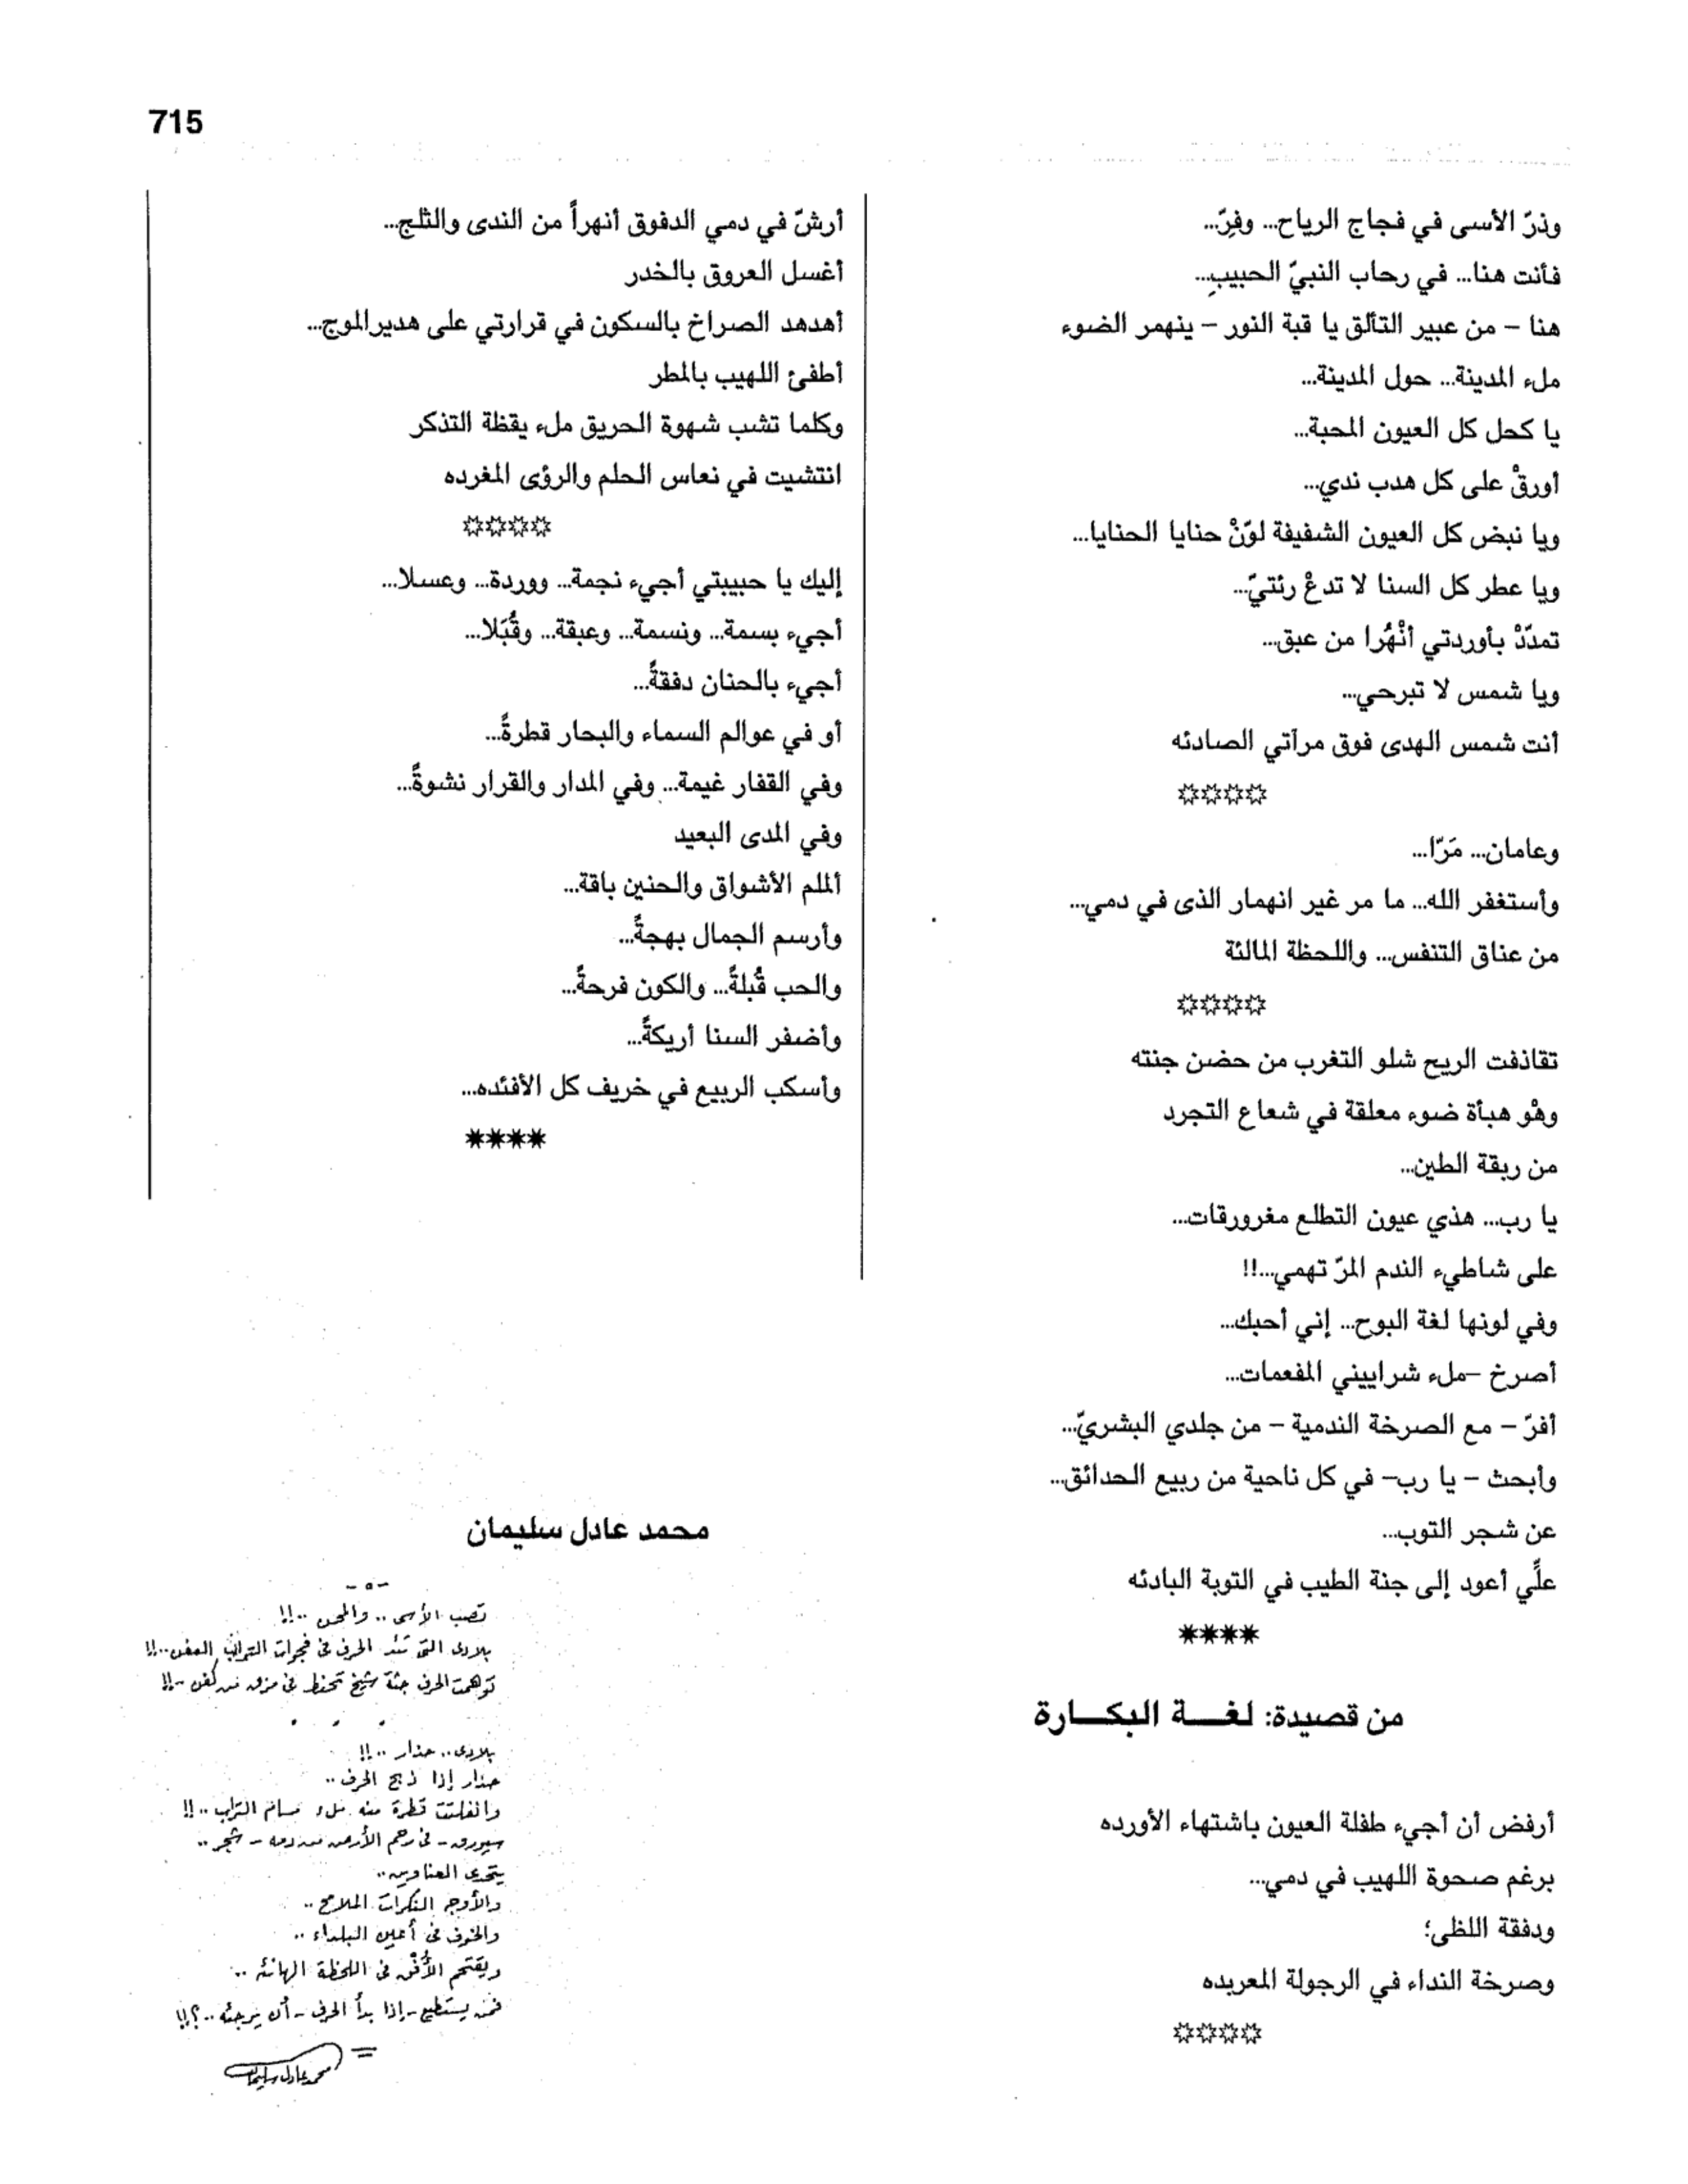 715
وذرّ الأسى في فجاج الرياح... وفِرّ...
فأنت هنا... في رحاب النبيّ الحبيبِ...
هنا – من عبير التألق يا قبة النور – ينهمر الضوء
ملء المدينة... حول المدينة...
يا كحل كل العيون المحبة...
أورقْ على كل هدب ندي...
ويا نبض كل العيون الشفيفة لوّنْ حنايا الحنايا...
ويا عطر كل السنا لا تدعْ رئتيّ...
تمدّدْ بأوردتي أنْهُرا من عبق...
ويا شمس لا تبرحي...
أنت شمس الهدى فوق مرآتي الصادئه
☼☼☼☼
وعامان... مَرّا...
وأستغفر الله... ما مر غير انهمار الذى في دمي...
من عناق التنفس... واللحظة المالئة
☼☼☼☼
تقاذفت الريح شلو التغرب من حضن جنته
وهْو هبأة ضوء معلقة في شعاع التجرد
من ربقة الطين...
يا رب... هذي عيون التطلع مغرورقات...
على شاطيء الندم المرّ تهمي...!!
وفي لونها لغة البوح... إني أحبك...
أصرخ –ملء شراييني المفعمات...
أفرّ – مع الصرخة الندمية – من جلدي البشريّ...
وأبحث – يا رب– في كل ناحية من ربيع الحدائق...
عن شجر التوب...
علِّي أعود إلى جنة الطيب في التوبة البادئه
✷✷✷✷
من قصيدة: لغـــة البكـــارة
أرفض أن أجيء طفلة العيون باشتهاء الأورده
برغم صحوة اللهيب في دمي...
ودفقة اللظى؛
وصرخة النداء في الرجولة المعربده
☼☼☼☼
أرشّ في دمي الدفوق أنهراً من الندى والثلج...
أغسل العروق بالخدر
أهدهد الصراخ بالسكون في قرارتي على هديرالموج...
أطفئ اللهيب بالمطر
وكلما تشب شهوة الحريق ملء يقظة التذكر
انتشيت في نعاس الحلم والرؤى المغرده
☼☼☼☼
إليك يا حبيبتي أجيء نجمة... ووردة... وعسلا...
أجيء بسمة... ونسمة... وعبقة... وقُبَلا...
أجيء بالحنان دفقةً...
أو في عوالم السماء والبحار قطرةً...
وفي القفار غيمة... وفي المدار والقرار نشوةً...
وفي المدى البعيد
ألملم الأشواق والحنين باقة...
وأرسم الجمال بهجةً...
والحب قُبلةً... والكون فرحةً...
وأضفر السنا أريكةً...
وأسكب الربيع في خريف كل الأفئده...
✷✷✷✷
محمد عادل سليمان
- ٥ -
تصب الأسى .. والمحن ..!!
بلادى التى تئد الحرف فى فجوات التراب العفن..!!
توهمت الحرف جثة شيخ تحنط فى مزق من كفن ..!!
. . .
بلادى.. حذار ..!!
حذار إذا ذبح الحرف ..
وانفلتت قطرة منه ملء مسام التراب ..!!
سيورق - فى رحم الأرض من دمه - شجر ..
يتحدى العناوين..
والأوجه النكرات الملامح ..
والخوف فى أعين البلداء ..
ويقتحم الأُفْق فى اللحظة الهانئه ..
فمن يستطيع - إذا بدأ الحرف - أن يرجئه ..؟!!
محمد عادل سليمان